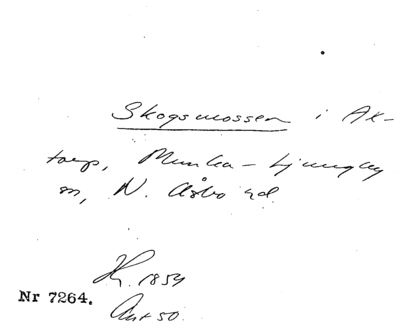 Skogsmossen i Ax-
torp, Munka-Ljungby
sn, N. Åsbo hd.
Hr. 1854
Nr 7264.
Ant 50.